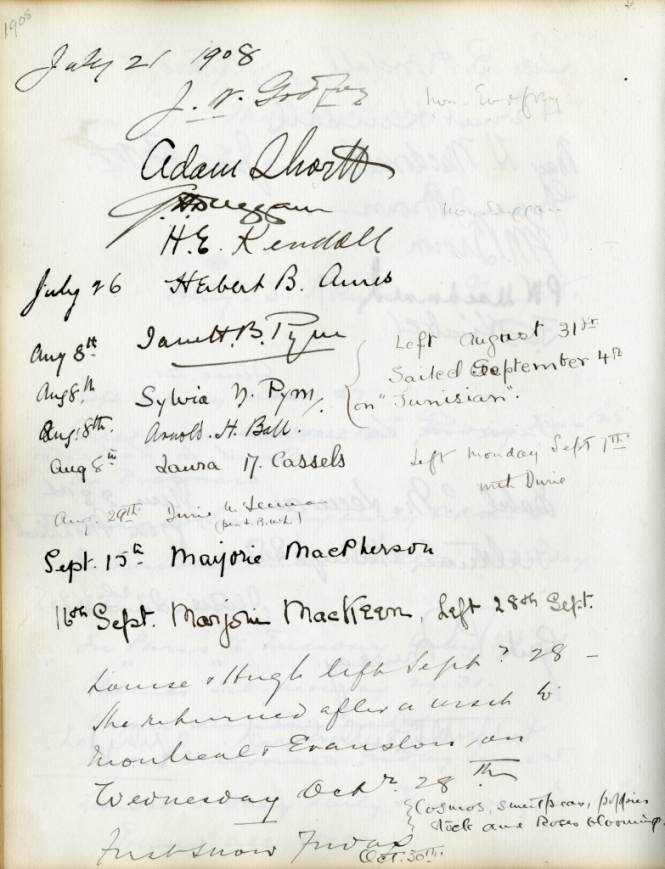 1908
July 21 1908
J. W. Godfrey
Adam Shortt
G.H. Duggan
H.E. Kendall
July 26 Herbert B. Ames
Aug 8th Janet H. B. Pym
Left August 31st
Sailed September 4th
on "Tunisian".
Aug 8th Sylvia N. Pym.
Aug. 8th. Arnold. H. Ball.
Aug 8th Laura M. Cassels
Left Monday Sept 1st
with Durie
Aug. 29th Durie
Sept. 15th Marjorie MacPherson
16th Sept. Marjorie MacKeen, Left 28th Sept.
Louise & Hugh left Sept ? 28 -
She returned after a week to
Montreal & Evanston on
Wednesday Octr. 28th
Cosmos, sweetpeas, poppies
stock and Roses blooming.
First snow Friday
Oct. 30th.